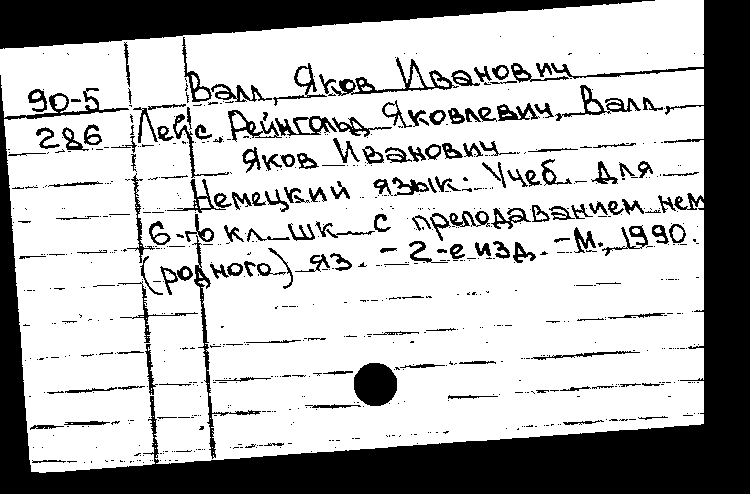 Валл, Яков Иванович
90-5
286 Лейс, Рейнгольд Яковлевич, Валл,
Яков Иванович
Немецкий язык: Учеб. для
6-го кл. шк с преподаванием нем
(родного) яз. - 2-е изд. - М., 1990.